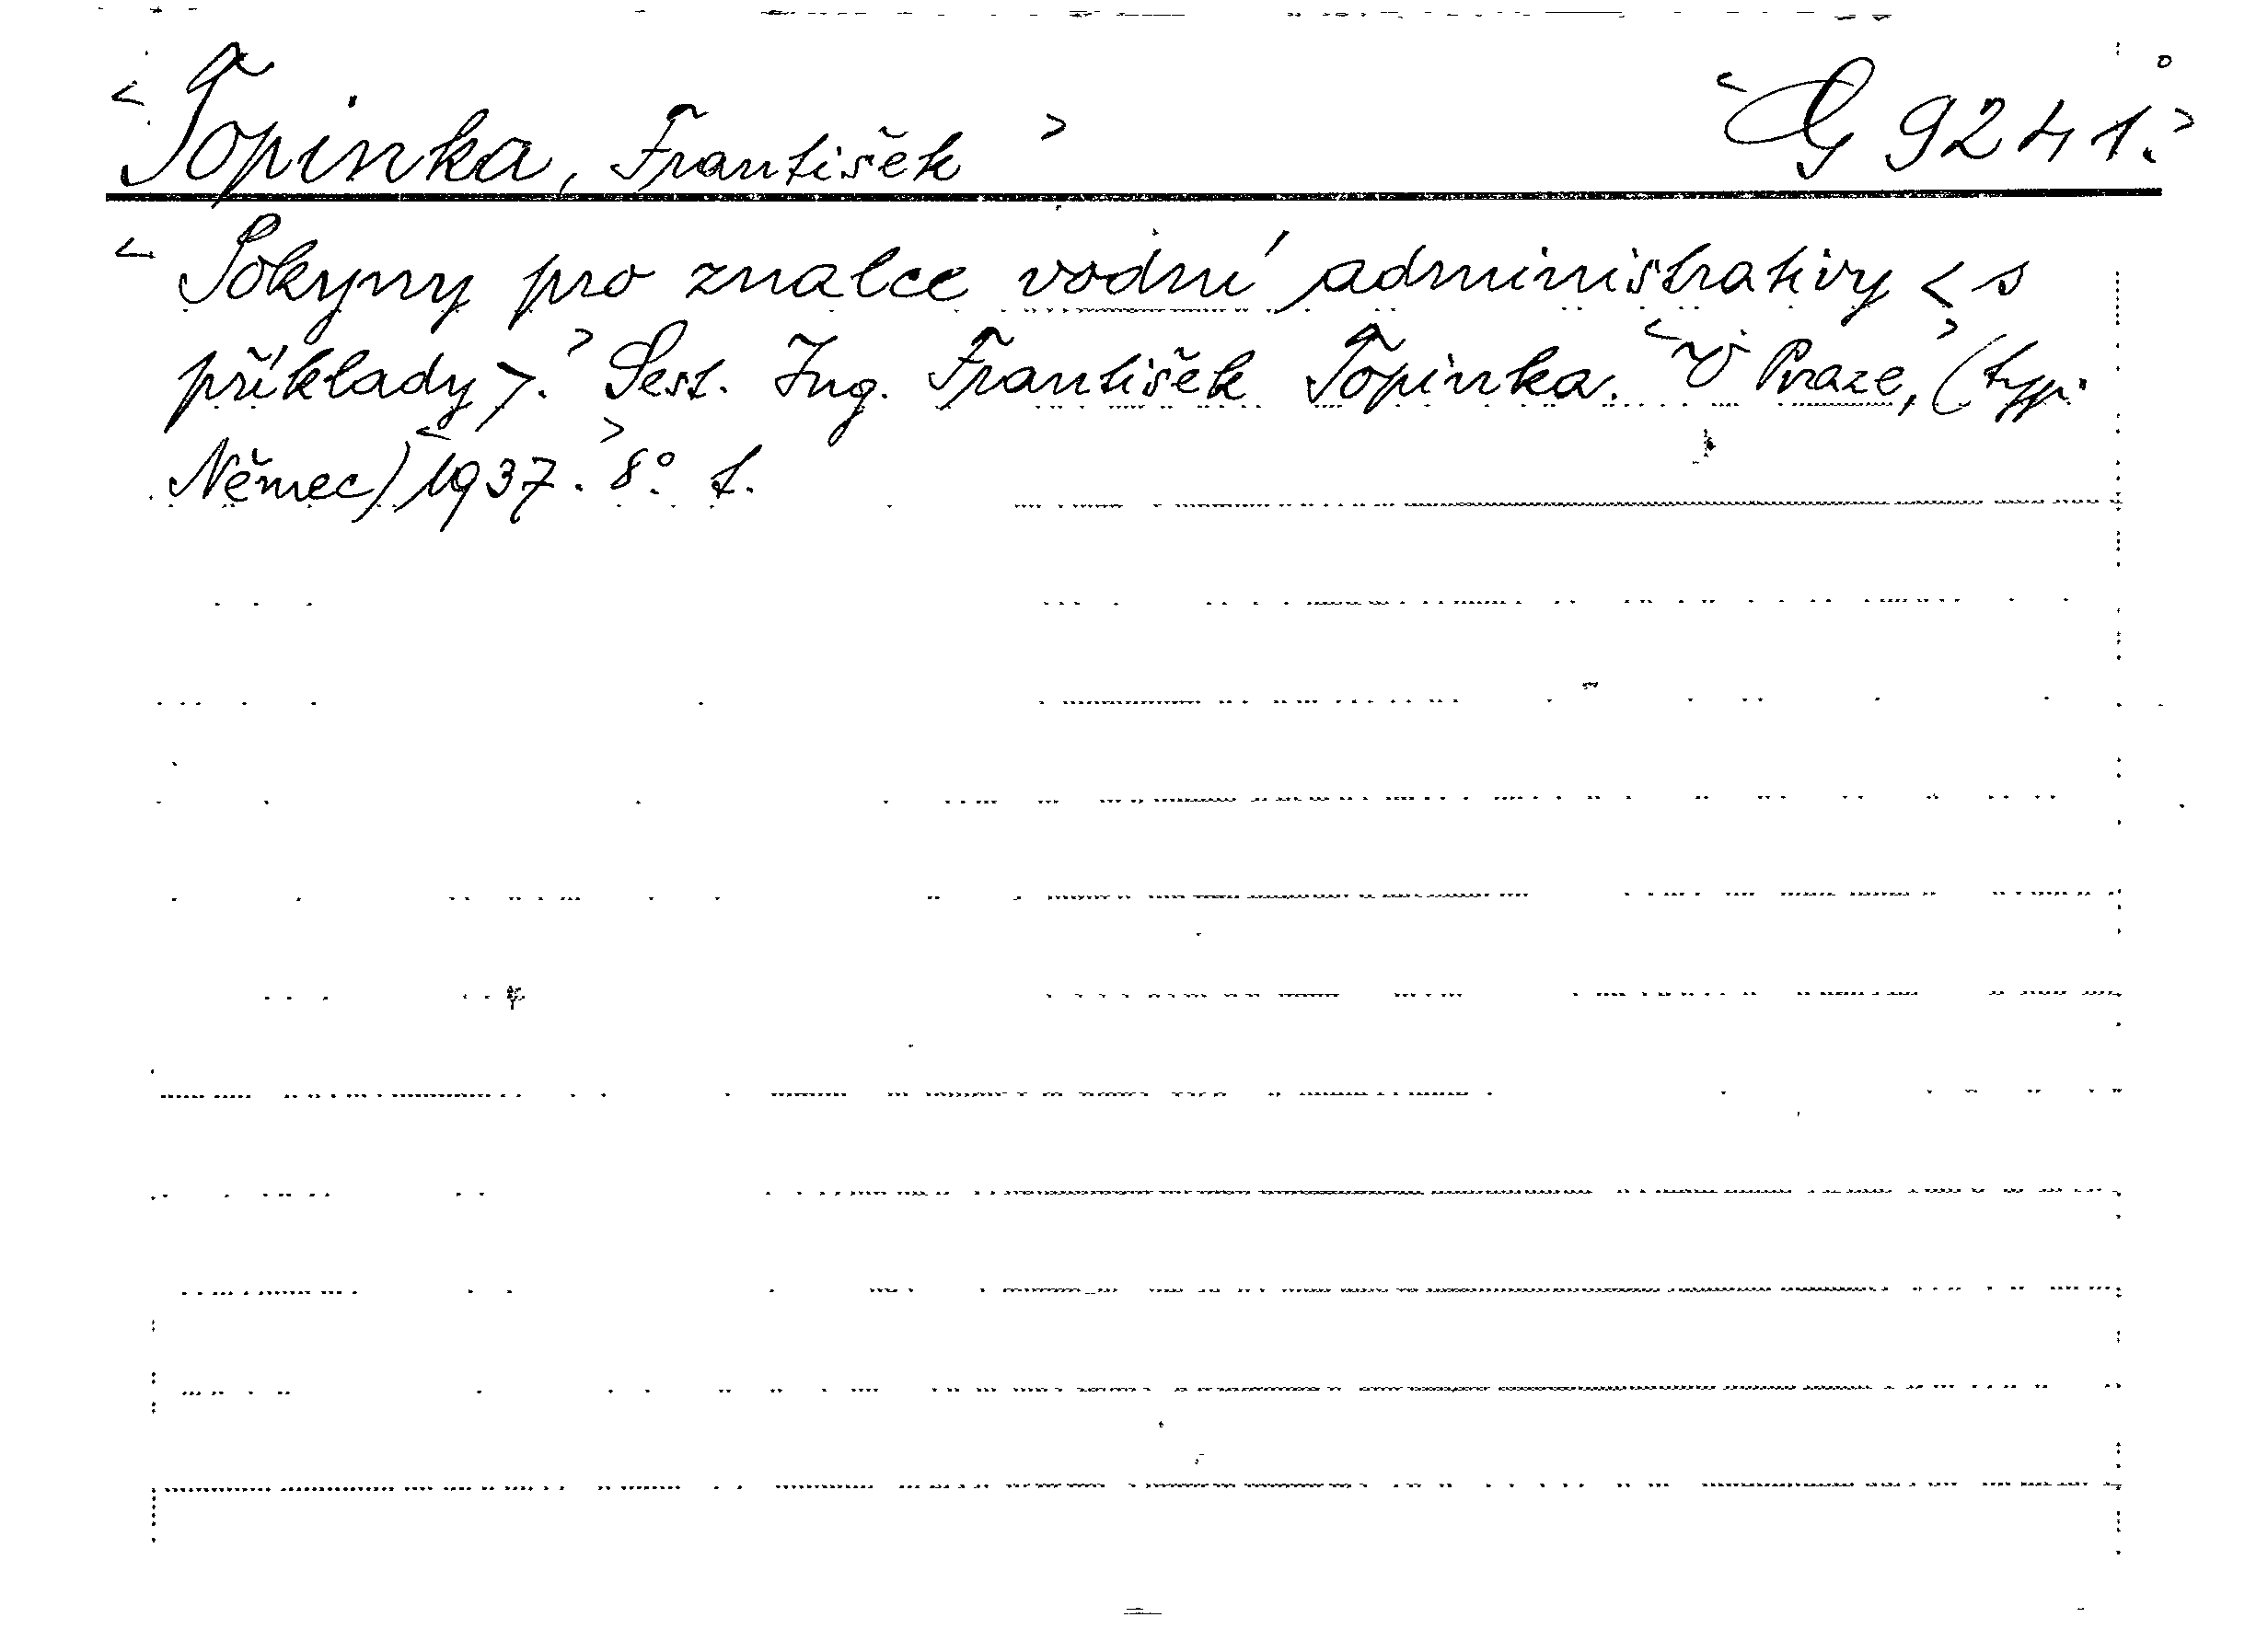 <Topinka, František> <G 9241.>
<Pokyny pro znalce vodní administrativy <s
příklady>.> Sest. Ing. František Topinka. <V Praze,> (typ.
Němec) <1937.> 8°. t.